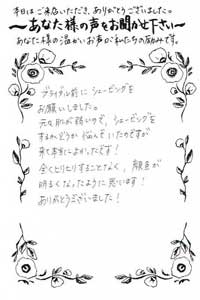 本日はご来店いただき、ありがとうございました。
〜あなた様の声をお聞かせ下さい〜
あなた様の温かいお声が私たちの励みです。
ブライダル前にシェービングを
お願いしました。
元々肌が弱いので、シェービングを
するかどうか悩んでいたのですが
来て本当によかったです!
全くヒリヒリすることなく、顔色が
明るくなったように思います!
ありがとうございました!